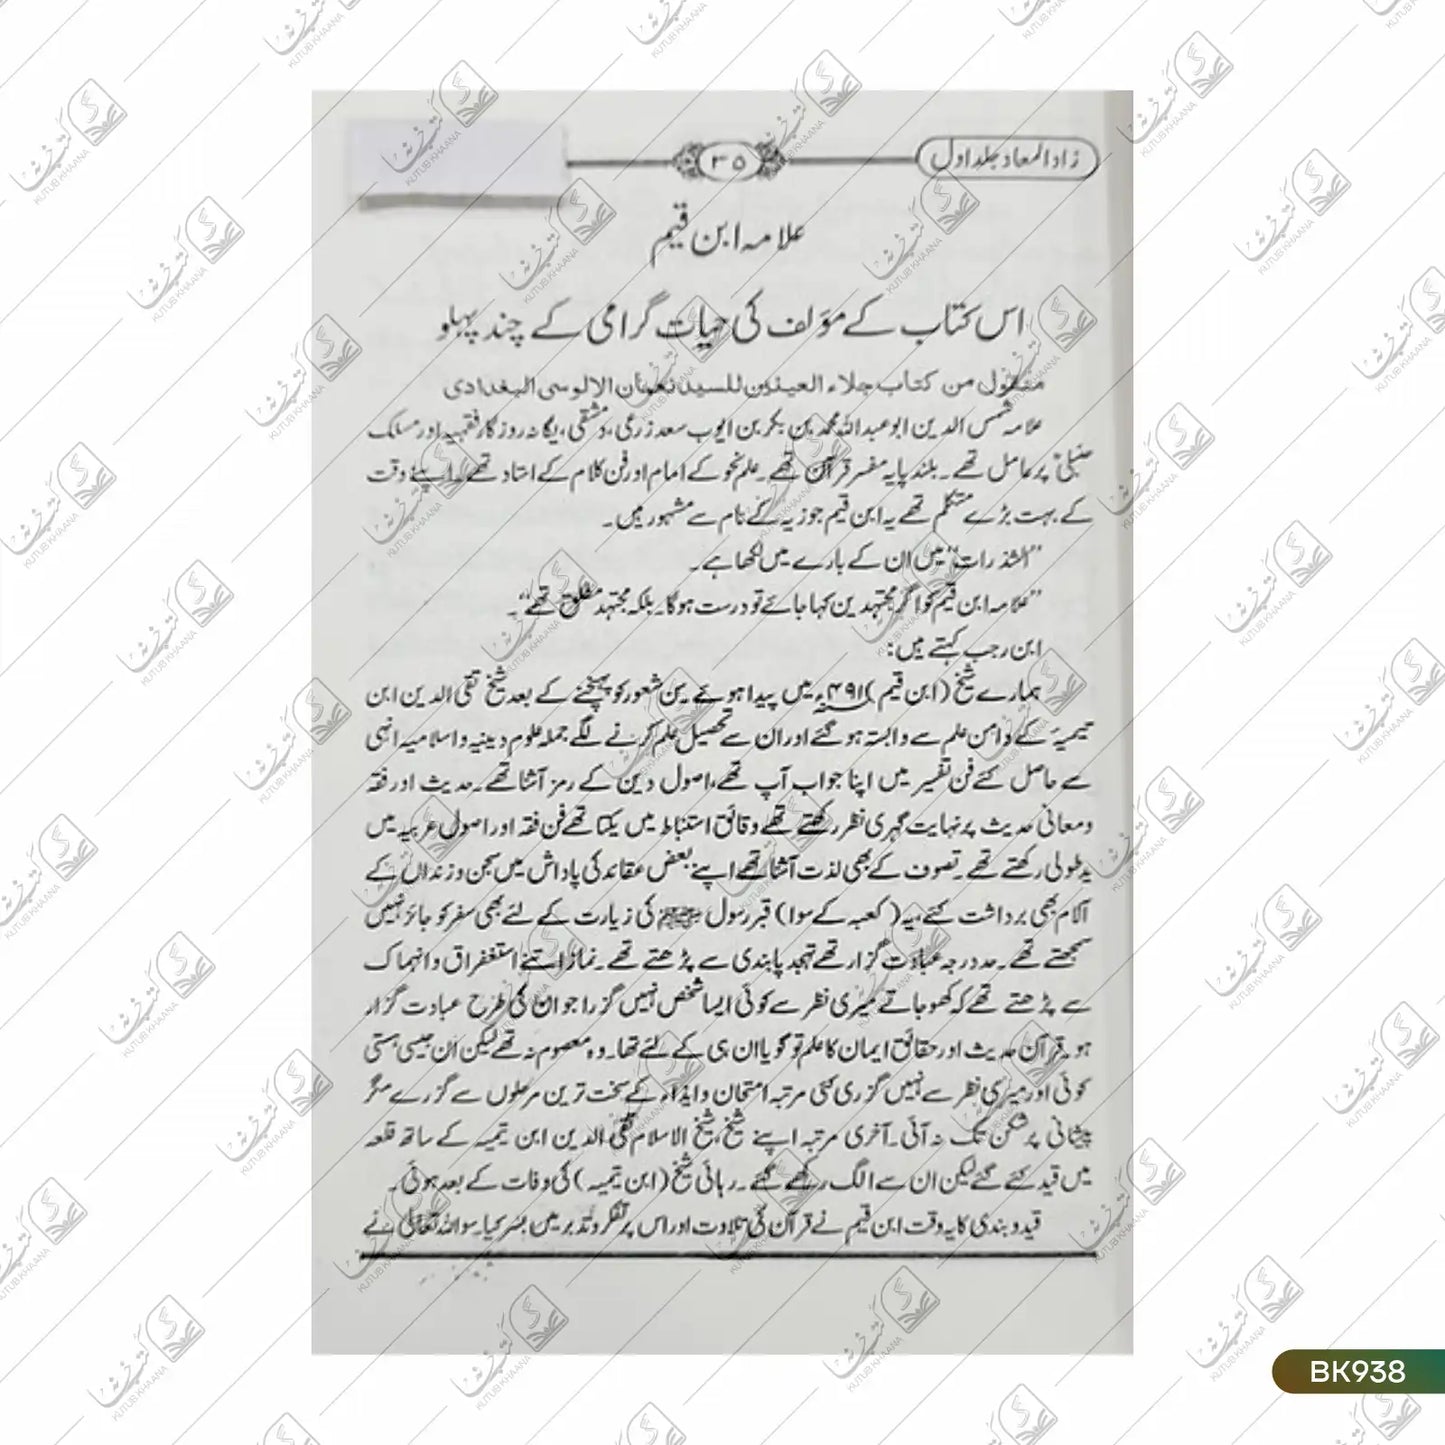 زاد المعاد جلد اول
۳۵
علامہ ابن قیم
اس کتاب کے مؤلف کی حیات گرامی کے چند پہلو
منقول من کتاب جلاء العینین للسید نعمان الالوسی البغدادی
علامہ شمس الدین ابو عبداللہ محمد بن بکر بن ایوب سعد زرعی، دمشقی، یگانہ روزگار فقیہہ اور مسلک
حنبلیؒ پر عامل تھے۔ بلند پایہ مفسر قرآن تھے۔ علم نحو کے امام اور فن کلام کے استاد تھے۔ اپنے وقت
کے بہت بڑے متکلم تھے یہ ابن قیم جوزیہ کے نام سے مشہور ہیں۔
”الشذرات“ میں ان کے بارے میں لکھا ہے۔
”علامہ ابن قیم کو اگر مجتہدین کہا جائے تو درست ہوگا۔ بلکہ مجتہد مطلق تھے“۔
ابن رجب کہتے ہیں:
ہمارے شیخ (ابن قیم) ۶۹۱ء میں پیدا ہوئے سن شعور کو پہنچنے کے بعد شیخ تقی الدین ابن
تیمیہؒ کے دامن علم سے وابستہ ہو گئے اور ان سے تحصیل علم کرنے لگے جملہ علوم دینیہ و اسلامیہ انہی
سے حاصل کئے فن تفسیر میں اپنا جواب آپ تھے، اصول دین کے رمز آشنا تھے۔ حدیث اور فقہ
و معانی حدیث پر نہایت گہری نظر رکھتے تھے دقائق استنباط میں یکتا تھے فن فقہ اور اصول عربیہ میں
ید طولی رکھتے تھے۔ تصوف کے بھی لذت آشنا تھے اپنے بعض عقائد کی پاداش میں سجن و زنداں کے
آلام بھی برداشت کئے، یہ (کعبہ کے سوا) قبر رسول ﷺ کی زیارت کے لئے بھی سفر کو جائز نہیں
سمجھتے تھے۔ حد درجہ عبادت گزار تھے تہجد پابندی سے پڑھتے تھے۔ نماز اتنے استغفراق و انہماک
سے پڑھتے تھے کہ کھو جاتے میری نظر سے کوئی ایسا شخص نہیں گزرا جو ان کی طرح عبادت گزار
ہو۔ قرآن حدیث اور حقائق ایمان کا علم تو گویا ان ہی کے لئے تھا۔ وہ معصوم نہ تھے لیکن اُن جیسی ہستی
کوئی اور میری نظر سے نہیں گزری کئی مرتبہ امتحان و ایذاء کے سخت ترین مرحلوں سے گزرے مگر
پیشانی پر شکن تک نہ آئی۔ آخری مرتبہ اپنے شیخ، شیخ الاسلام تقی الدین ابن تیمیہ کے ساتھ قلعہ
میں قید کئے گئے لیکن ان سے الگ رکھے گئے۔ رہائی شیخ (ابن تیمیہ) کی وفات کے بعد ہوئی۔
قید و بندی کا یہ وقت ابن قیم نے قرآن کی تلاوت اور اس پر تفکر و تدبر میں بسر کیا۔ سو اللہ تعالیٰ نے
کتب خانہ
KUTUB KHAANA
BK938